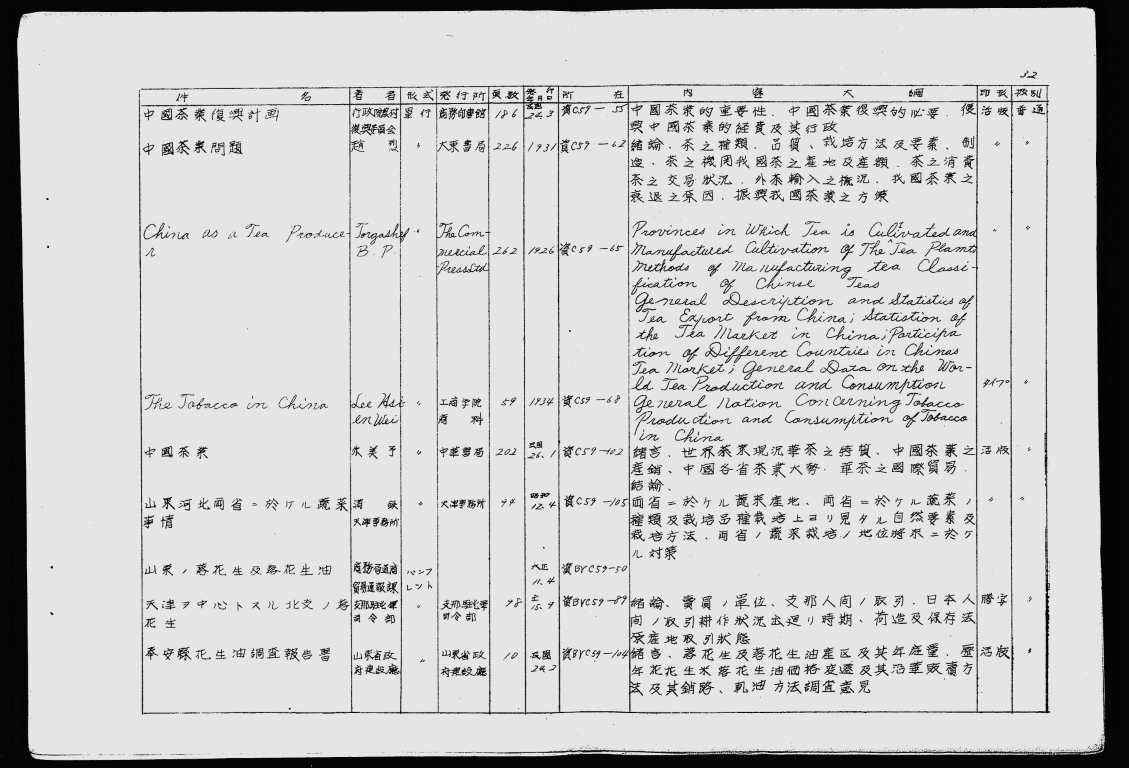 32
件 名 著者 形式 発行所 頁数 発行年月日 所在 内容大綱 印刷 扱別
中國茶業復興計画 行政院農村 單行 商務印書館 186 民國 資C59-55 中國茶業的重要性、中國茶業復興的必要、復 活版 普通
復興委員会 24.3 興中國茶業的経費及其行政
中國茶業問題 趙烈 〃 大東書局 226 1931 資C59-62 緒論、茶之種類、品質、栽培方法及要素、制 〃 〃
造、茶之機関我國茶之産地及産額、茶之消費
茶之交易狀况、外茶輸入之概况、我國茶業之
衰退之原因、振興我國茶業之方策
China as a Tea Produce- Torgasheff 〃 The Com- Provinces in Which Tea is Cultivated and 〃 〃
r B. P. mercial 262 1926 資C59-65 Manufactured Cultivation of The Tea Plants
Press Ltd Methods of Manufacturing tea Classi-
fication of Chinse Teas
General Description and Statistics of
Tea Export from China; Statistion of
the Tea Market in China; Participa
tion of Different Countries in Chinas
Tea Market; General Data on the Wor-
ld Tea Production and Consumption タイプ 〃
The Tobacco in China Lee Hsi- 〃 工商学院 59 1934 資C59-68 General Nation Concerning Tobacco
en Wei 商科 Production and Consumption of Tobacco
in China
中國茶業 朱美予 〃 中華書局 202 民國 26.1 資C59-102 緒言、世界茶業現況華茶之特質、中國茶葉之 活版 〃
産銷、中國各省茶業大勢、華茶之國際貿易、
結論、
山東河北両省ニ於ケル蔬菜 満鉄 〃 天津事務所 94 昭和 12.4 資C59-105 両省ニ於ケル蔬菜産地、両省ニ於ケル蔬菜ノ 〃 〃
事情 天津事務所 種類及栽培品種栽培上ヨリ見タル自然要素及
栽培方法、両省ノ蔬菜栽培ノ地位將来ニ於ケ
ル対策
山東ノ落花生及落花生油 商務 パンフ 大正 資BVC59-50
貿易通報課 レント 11.4
天津ヲ中心トスル北支ノ落 支那駐屯軍 〃 支那駐屯軍 98 大 資BVC59-89 緒論、賣買ノ單位、支那人間ノ取引、日本人 謄字 〃
花生 司令部 司令部 15.9 間ノ取引耕作狀况出廻リ時期、荷造及保存法
原産地取引狀態
泰安縣花生油調査報告書 山東省政 〃 山東省政 10 民國 資BVC59-104 緒言、落花生及落花生油産区及其年産量、歴 活版 〃
府建設廳 府建設廳 24.2 年花花生米落花生油価格変遷及其沿革販賣方
法及其銷路、軋油方法調査意見